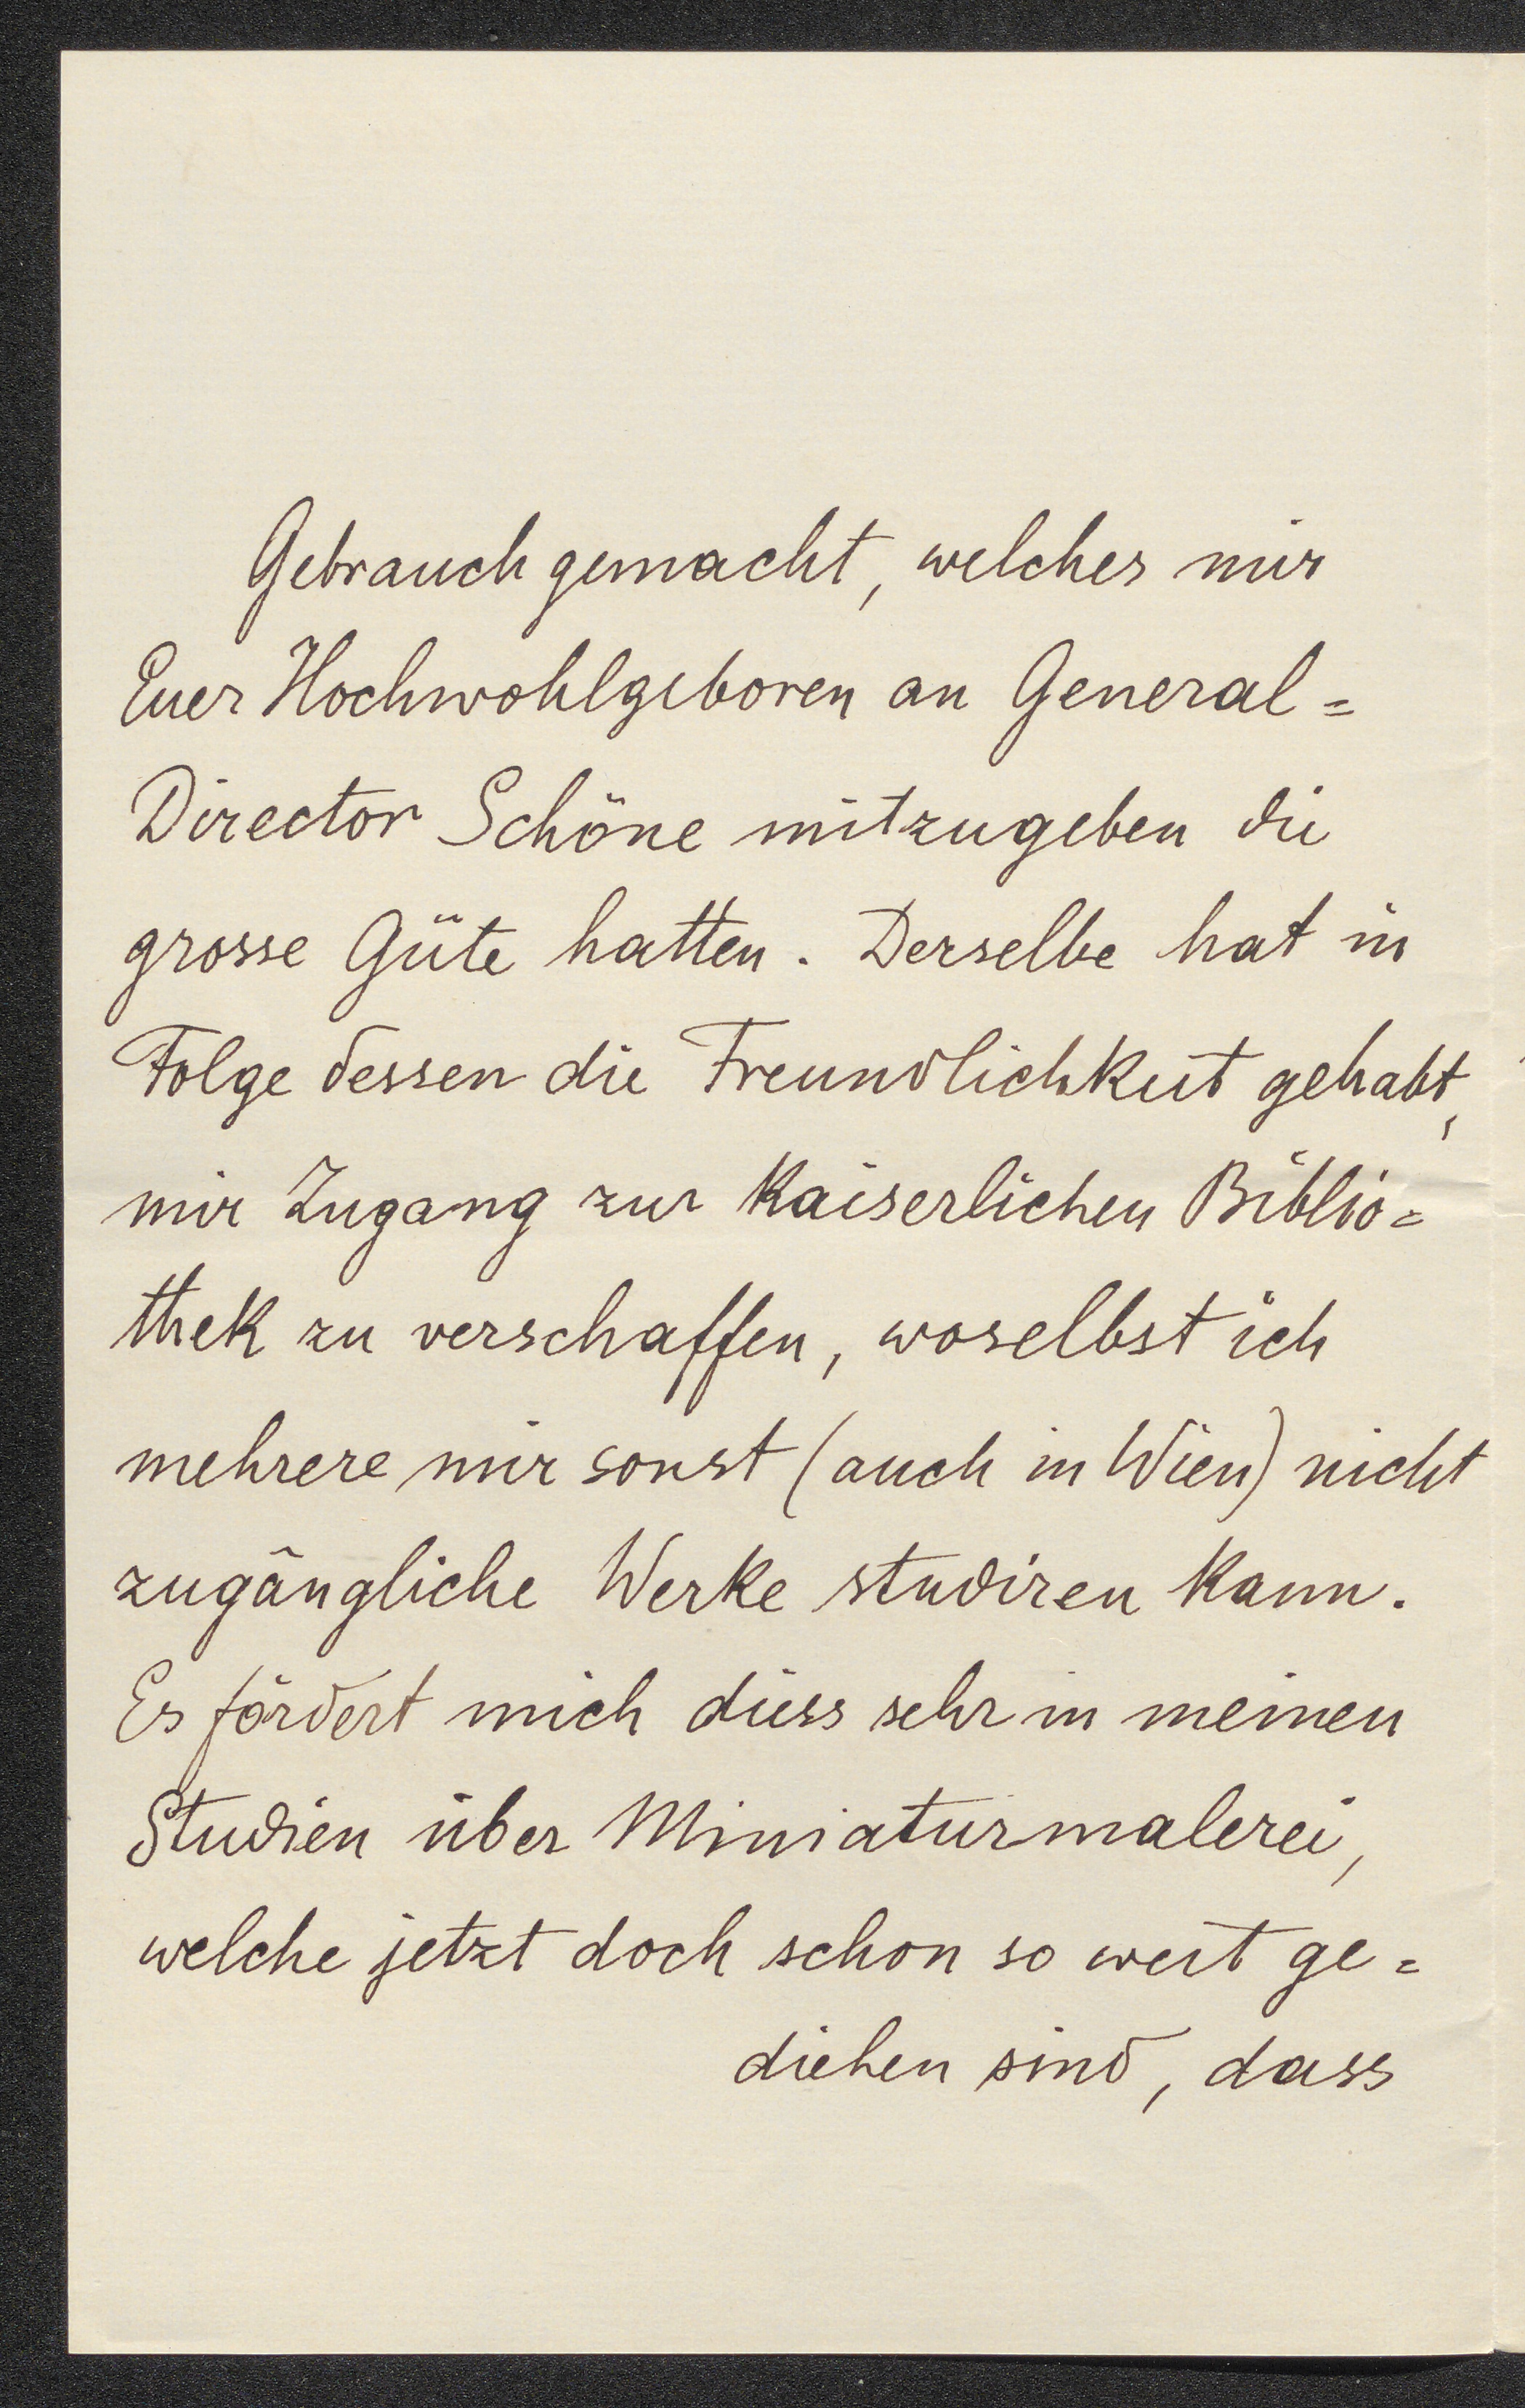 Gebrauch gemacht, welches mir
Euer Hochwohlgeboren an General=
Director Schöne mitzugeben die
grosse Güte hatten. Derselbe hat in
Folge dessen die Freundlichkeit gehabt,
mir Zugang zur Kaiserlichen Biblio=
thek zu verschaffen, woselbst ich
mehrere mir sonst (auch in Wien) nicht
zugängliche Werke studiren kann.
Es fördert mich diess sehr in meinen
Studien über Miniaturmalerei,
welche jetzt doch schon so weit ge=
diehen sind, dass